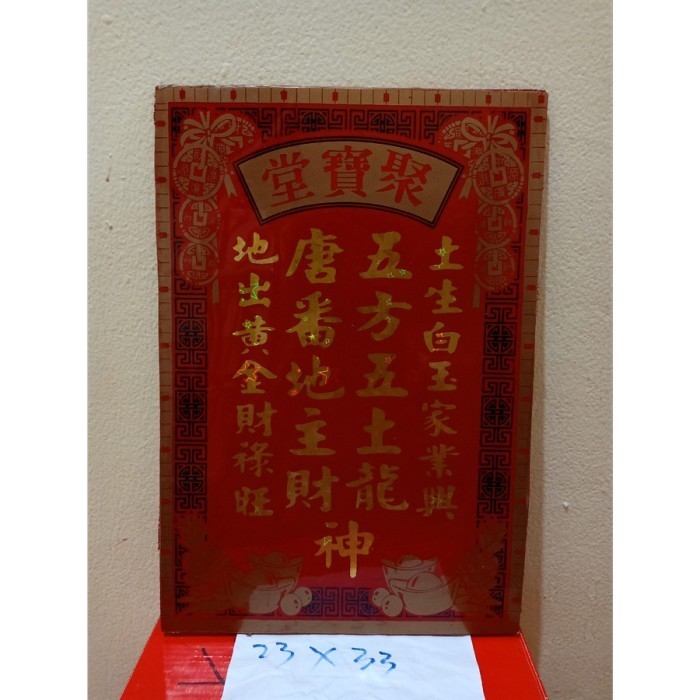 聚寶堂
土生白玉家業興
五方五土龍
唐番地主財
神
地出黃金財祿旺
23 X 33